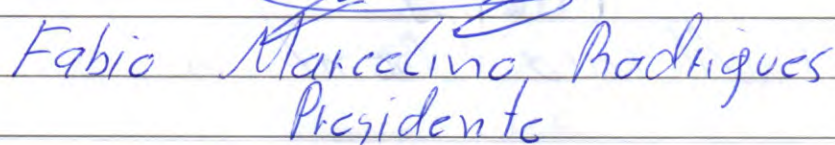 Fabio Marcelino Rodrigues
Presidente